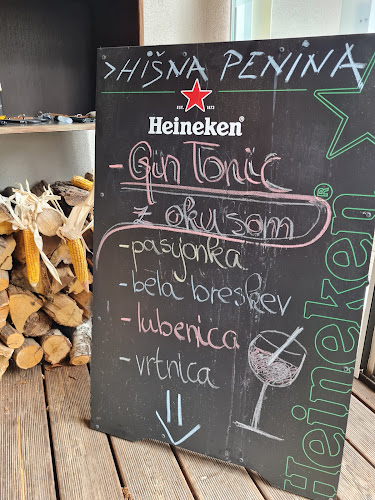 >HIŠNA PENINA
EST. 1873
Heineken®
- Gin Tonic
z okusom
- pasijonka
- bela breskev
- lubenica
- vrtnica
Heineken®